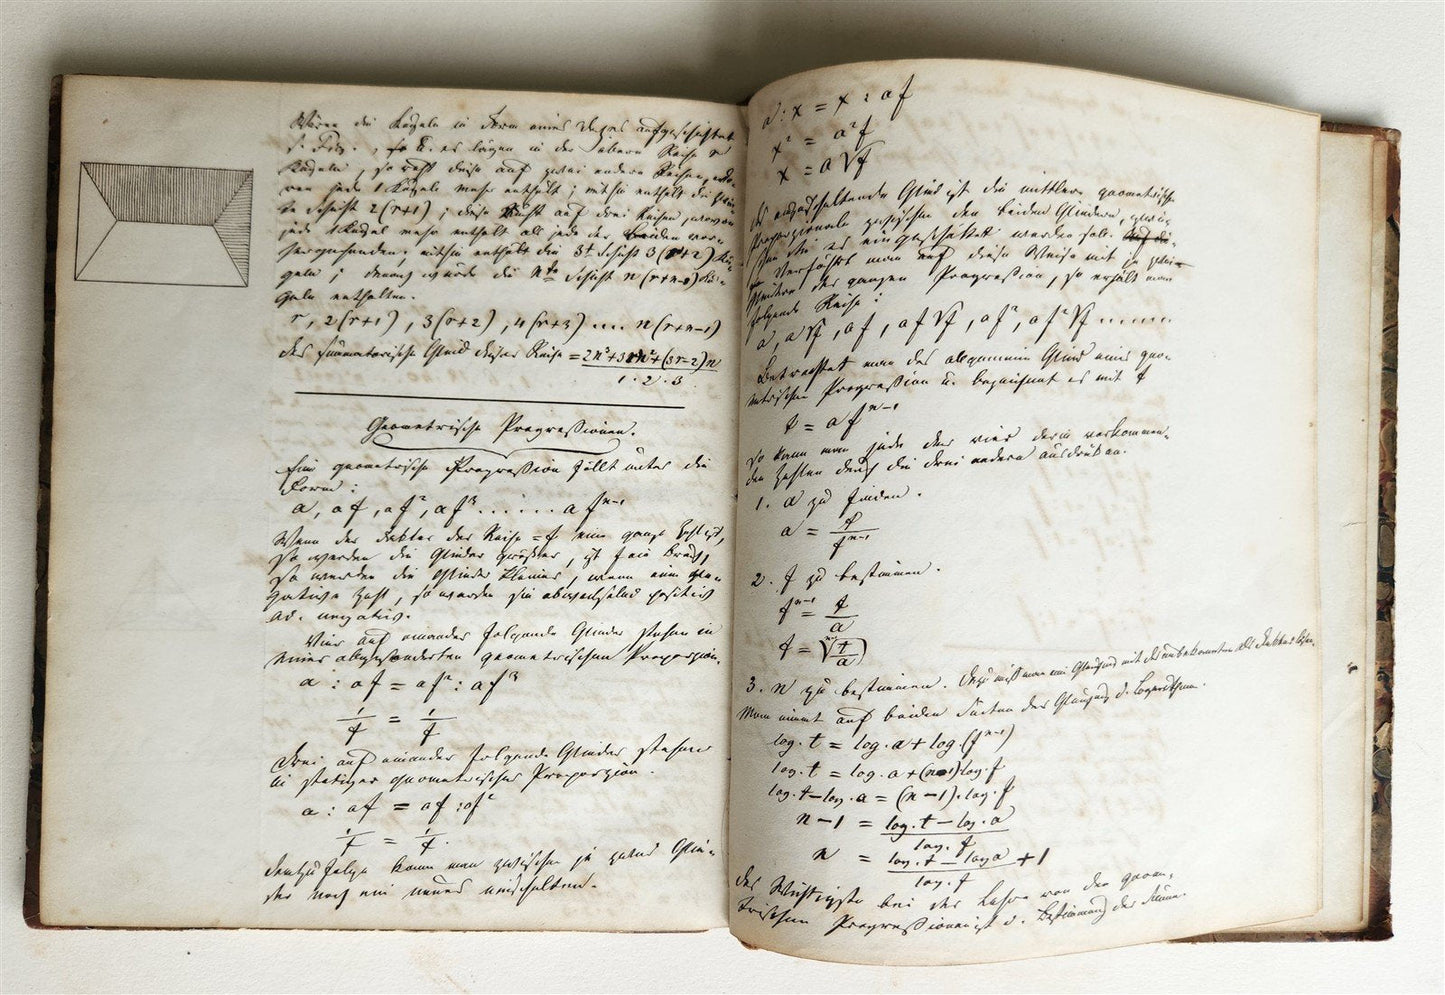 Wären die Kugeln in Form eines Daches aufgeschichtet
s. Fig. , so d. es lägen in der obern Reihe r
Kugeln, so ruht diese auf zwei andern Reihen, wo-
von jede 1 Kugel mehr enthält; mithin enthält die zwei-
te Schicht 2(r+1); diese Schicht auf drei Reihen, wovon
jede 1 Kugel mehr enthält als jede der beiden vor-
hergehenden, mithin enthält die 3te Schicht 3(r+2) Ku-
geln; demnach würde die nte Schicht n(r+n-1) Ku-
geln enthalten.
r, 2(r+1), 3(r+2), 4(r+3) .... n(r+n-1)
Das summatorische Glied dieser Reihe = 2n³+3rn²+(3r-2)n
1 . 2 . 3
Geometrische Progressionen.
Eine geometrische Progression fällt unter die
Form:
a, af, af², af³ ...... afⁿ⁻¹
Wenn der Faktor der Reihe = f eine ganze Zahl ist,
so werden die Glieder größer, ist f ein Bruch,
so werden die Glieder kleiner, wenn eine ne-
gative Zahl, so werden sie abwechselnd positiv
od. negativ.
Vier auf einander folgende Glieder stehen in
einer abgesonderten geometrischen Proporzion.
a : af = af² : af³
1/f = 1/f
Drei auf einander folgende Glieder stehen
in stetiger geometrischer Proporzion.
a : af = af : af²
1/f = 1/f.
Demzufolge kann man zwischen je zwei Glie-
der noch ein neues einschalten.
a : x = x : af
x² = a²f
x = a√f
Das einzuschaltende Glied ist die mittlere geometrische
Proporzionale zwischen den beiden Gliedern, zwi-
schen die es eingeschaltet werden soll.
Verfährt man auf diese Weise mit je zwei
Gliedern der ganzen Progression, so erhält man
folgende Reihe:
a, a√f, af, af√f, af², af²√f ......
Betrachtet man das allgemeine Glied einer geo-
metrischen Progression u. bezeichnet es mit t
t = afⁿ⁻¹
so kann man jede der vier darin vorkommen-
den Zahlen durch die drei andern ausdrücken.
1. a zu finden.
a = t/fⁿ⁻¹
2. f zu bestimmen.
fⁿ⁻¹ = t/a
f = ⁿ⁻¹√(t/a)
3. n zu bestimmen. man eine Gleichung mit
Man nimmt auf beiden Seiten der Gleichung d. Logarithmen.
log. t = log. a + log (fⁿ⁻¹)
log. t = log. a + (n-1) log. f
log. t - log. a = (n-1) . log. f
n-1 = log. t - log. a
log. f
n = log. t - log a + 1
log. f
Das Wichtigste bei der Lehre von den geome-
trischen Progressionen ist d. Bestimmung der Summe.